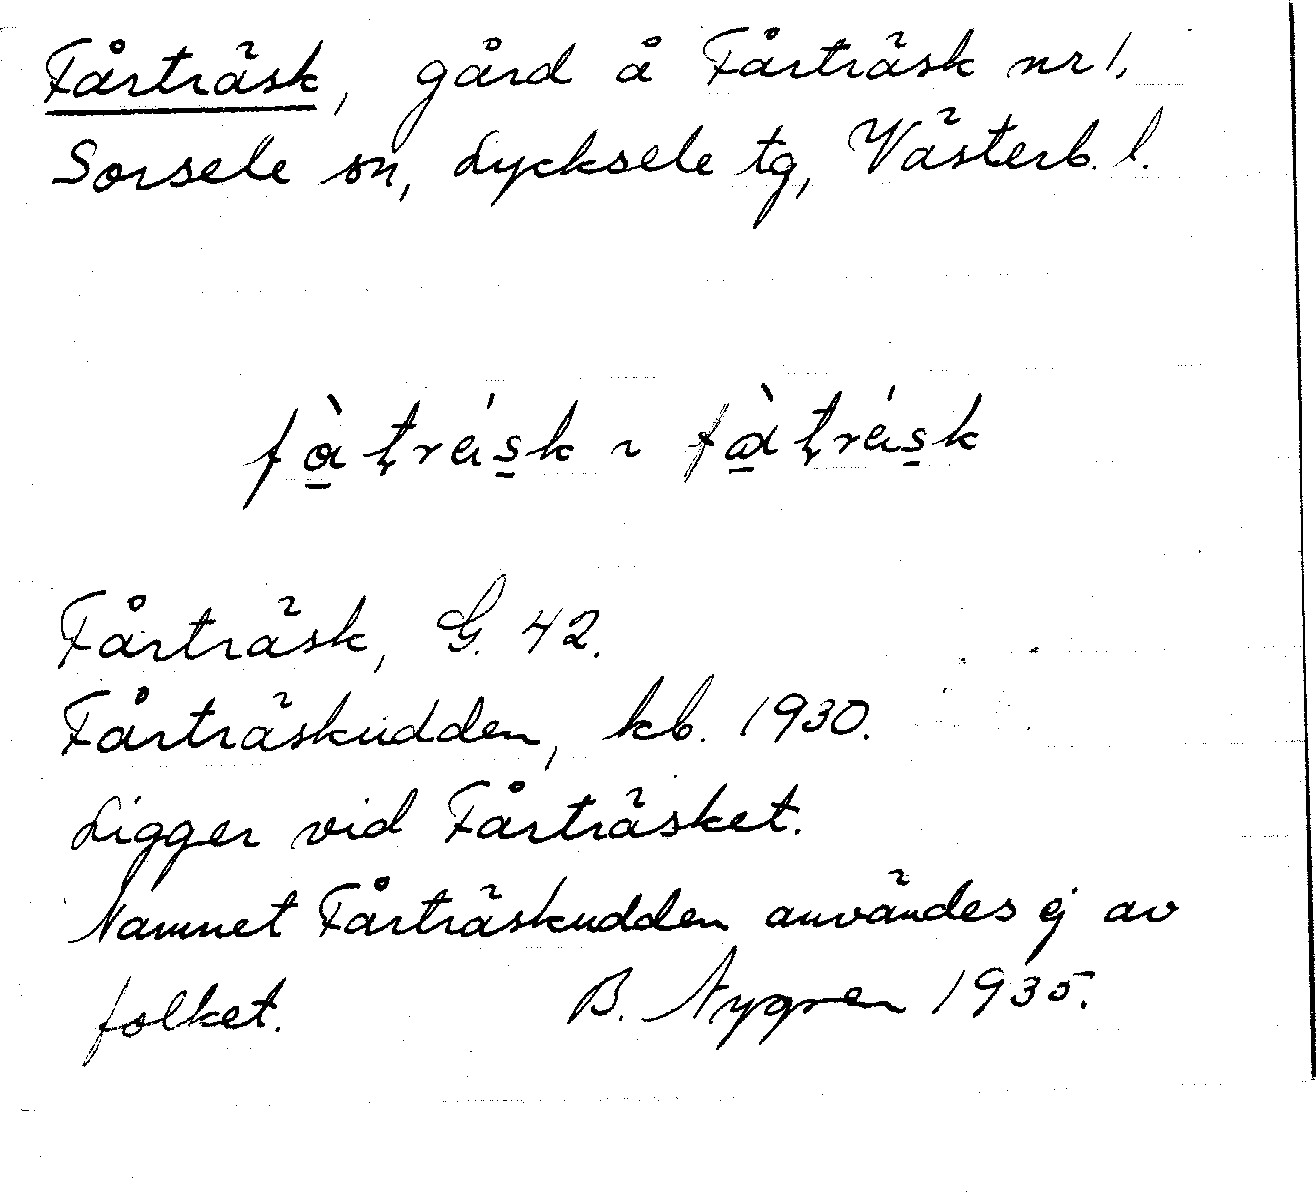 Fårträsk, gård å Fårträsk nr 1.
Sorsele sn, Lycksele tg, Västerb. l.
Fårträsk, G. 42.
Fårträskudden, kb. 1930.
Ligger vid Fårträsket.
Namnet Fårträskudden användes ej av
folket. B. Nygren 1935.